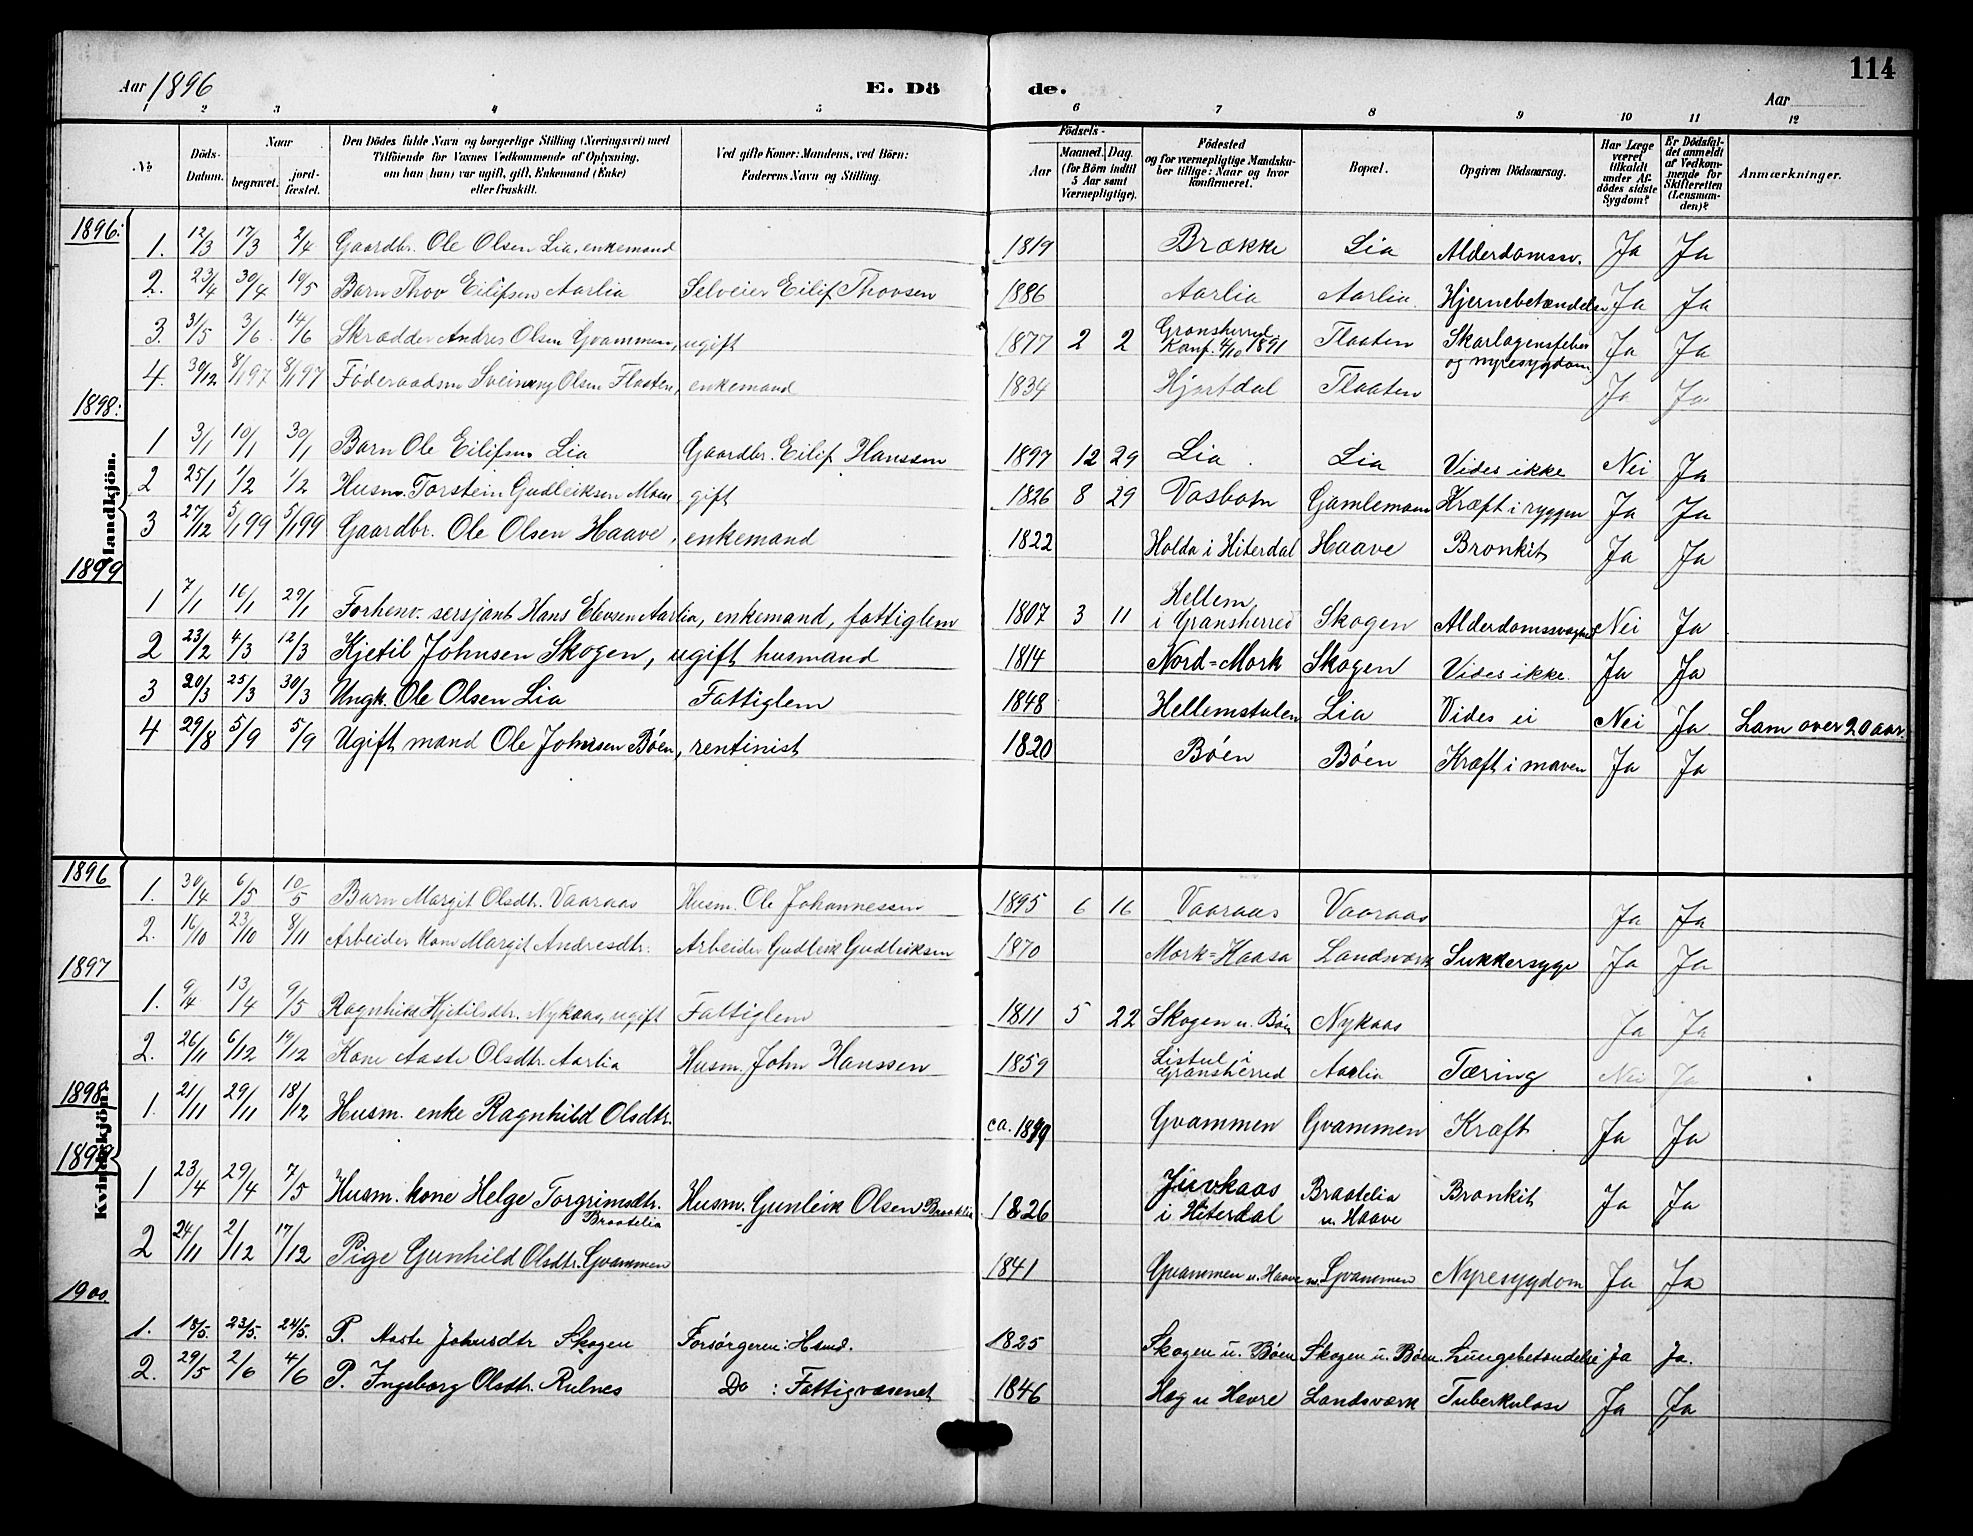 114
Aar 1896 E. Dö de. Aar
1 2 3 4 5 6 7 8 9 10 11 12
No. Döds-Datum. Naar begravet. jordfæstet. Den Dödes fulde Navn og borgerlige Stilling (Næringsvei) med Tilföiende for Voxnes Vedkommende af Oplysning, om han (hun) var ugift, gift, Enkemand (Enke) eller fraskilt. Ved gifte Koner: Mandens, ved Börn: Faderens Navn og Stilling. Födsels- Aar Maaned. Dag (for Börn indtil 5 Aar samt Værnepligtige). Födested og for værnepligtige Mandskaber tillige: Naar og hvor konfirmeret. Bopæl. Opgiven Dödsaarsag. Har Læge været tilkaldt under Afdödes sidste Sygdom? Er Dödsfaldet anmeldt af Vedkommende for Skifteretten (Lensmanden)? Anmærkninger.
Mandkjön.
1896:
1. 12/3 17/3 2/4 Gaardbr. Ole Olsen Lia, enkemand 1819 Brække Lia Alderdomssv. Ja Ja
2. 23/4 30/4 10/5 Barn Thov Eilifsen Aarlia Selveier Eilif Thovsen 1886 Aarlia Aarlia. Hjernebetændelse Ja Ja
3. 31/5 3/6 14/6 Skrædder Andres Olsen Gvammen, ugift 1877 2 2 Gransherred Konf. 4/10 1891 Flaaten Skarlagensfeber og nyresygdom Ja Ja
4. 30/12 8/1 97 8/1 97 Föderaadsm Sveinung Olsen Flaaten, enkemand 1834 Hjertdal Flaaten Ja Ja
1898:
1 3/1 10/1 30/1 Barn Ole Eilifsen Lia Gaardbr. Eilif Hanssen 1897 12 29 Lia Lia Vides ikke Nei Ja
2 25/1 1/2 1/2 Husm. Torstein Gudleiksen Moen, gift 1826 8 29 Vasbotn Gamlemoen Kræft i ryggen Ja Ja
3 27/12 5/1 99 5/1 99 Gaardbr. Ole Olsen Haave, enkemand 1822 Holda i Hiterdal Haave Bronkit Ja Ja
1899
1 7/1 16/1 29/1 Forhenv. sersjant Hans Elevsen Aarlia, enkemand, fattiglem 1807 3 11 Hellem i Gransherred Skogen Alderdomssvaghed Nei Ja
2 23/2 4/3 12/3 Kjetil Johnsen Skogen, ugift husmand 1814 Nord=Mork Skogen Vides ikke. Ja Ja
3 20/3 25/3 30/3 Ungk. Ole Olsen Lia Fattiglem 1848 Hellemstulen Lia Vides ei Nei Ja Lam over 20 aar.
4 29/8 5/9 5/9 Ugift mand Ole Johnsen Böen, rentinist 1820 Böen Böen Kræft i maven Ja Ja
Kvindekjön.
1896
1. 30/4 6/5 10/5 Barn Margit Olsdtr. Vaaraas Husm. Ole Johannessen 1895 6 16 Vaaraas Vaaraas Ja Ja
2. 16/10 23/10 8/11 Arbeider kone Margit Andresdtr. Arbeider Gudleik Gudleiksen 1870 Mork=Haasa Landsværk Sukkersyge Ja Ja
1897
1. 9/4 13/4 9/5 Ragnhild Kjetilsdtr. Nykaas, ugift Fattiglem 1811 5 22 Skogen u. Böen Nykaas Ja Ja
2. 26/11 6/12 19/12 Kone Aaste Olsdtr. Aarlia Husm. John Hanssen 1859 Listul i Gransherred Aarlia Tæring Nei Ja
1898
1. 21/11 29/11 18/12 Husm. enke Ragnhild Olsdtr. ca. Gvammen Gvammen Kræft Ja Ja
1899
1 23/4 29/4 7/5 Husm. kone Helge Torgrimsdtr. Braatelia Husm. Gunleik Olsen Braatelia 1826 Juvkaas i Hiterdal Braatelia u. Haave Bronkit Ja Ja
2 24/11 2/12 17/12 Pige Gunhild Olsdtr. Gvammen 1841 Gvammen u. Haave Gvammen Nyresygdom Ja Ja
1900
1. 18/5. 23/5. 24/5. P. Aaste Johnsdtr Skogen Forsörgeren: Hsmd. 1825 Skogen u. Böen Skogen u. Böen Lungebetændelse Ja Ja.
2. 29/5 2/6 4/6 P. Ingeborg Olsdtr. Rulnes Do : Fattigvæsenet 1846 Hag u Havre Landsværk Tuberkulose Ja Ja